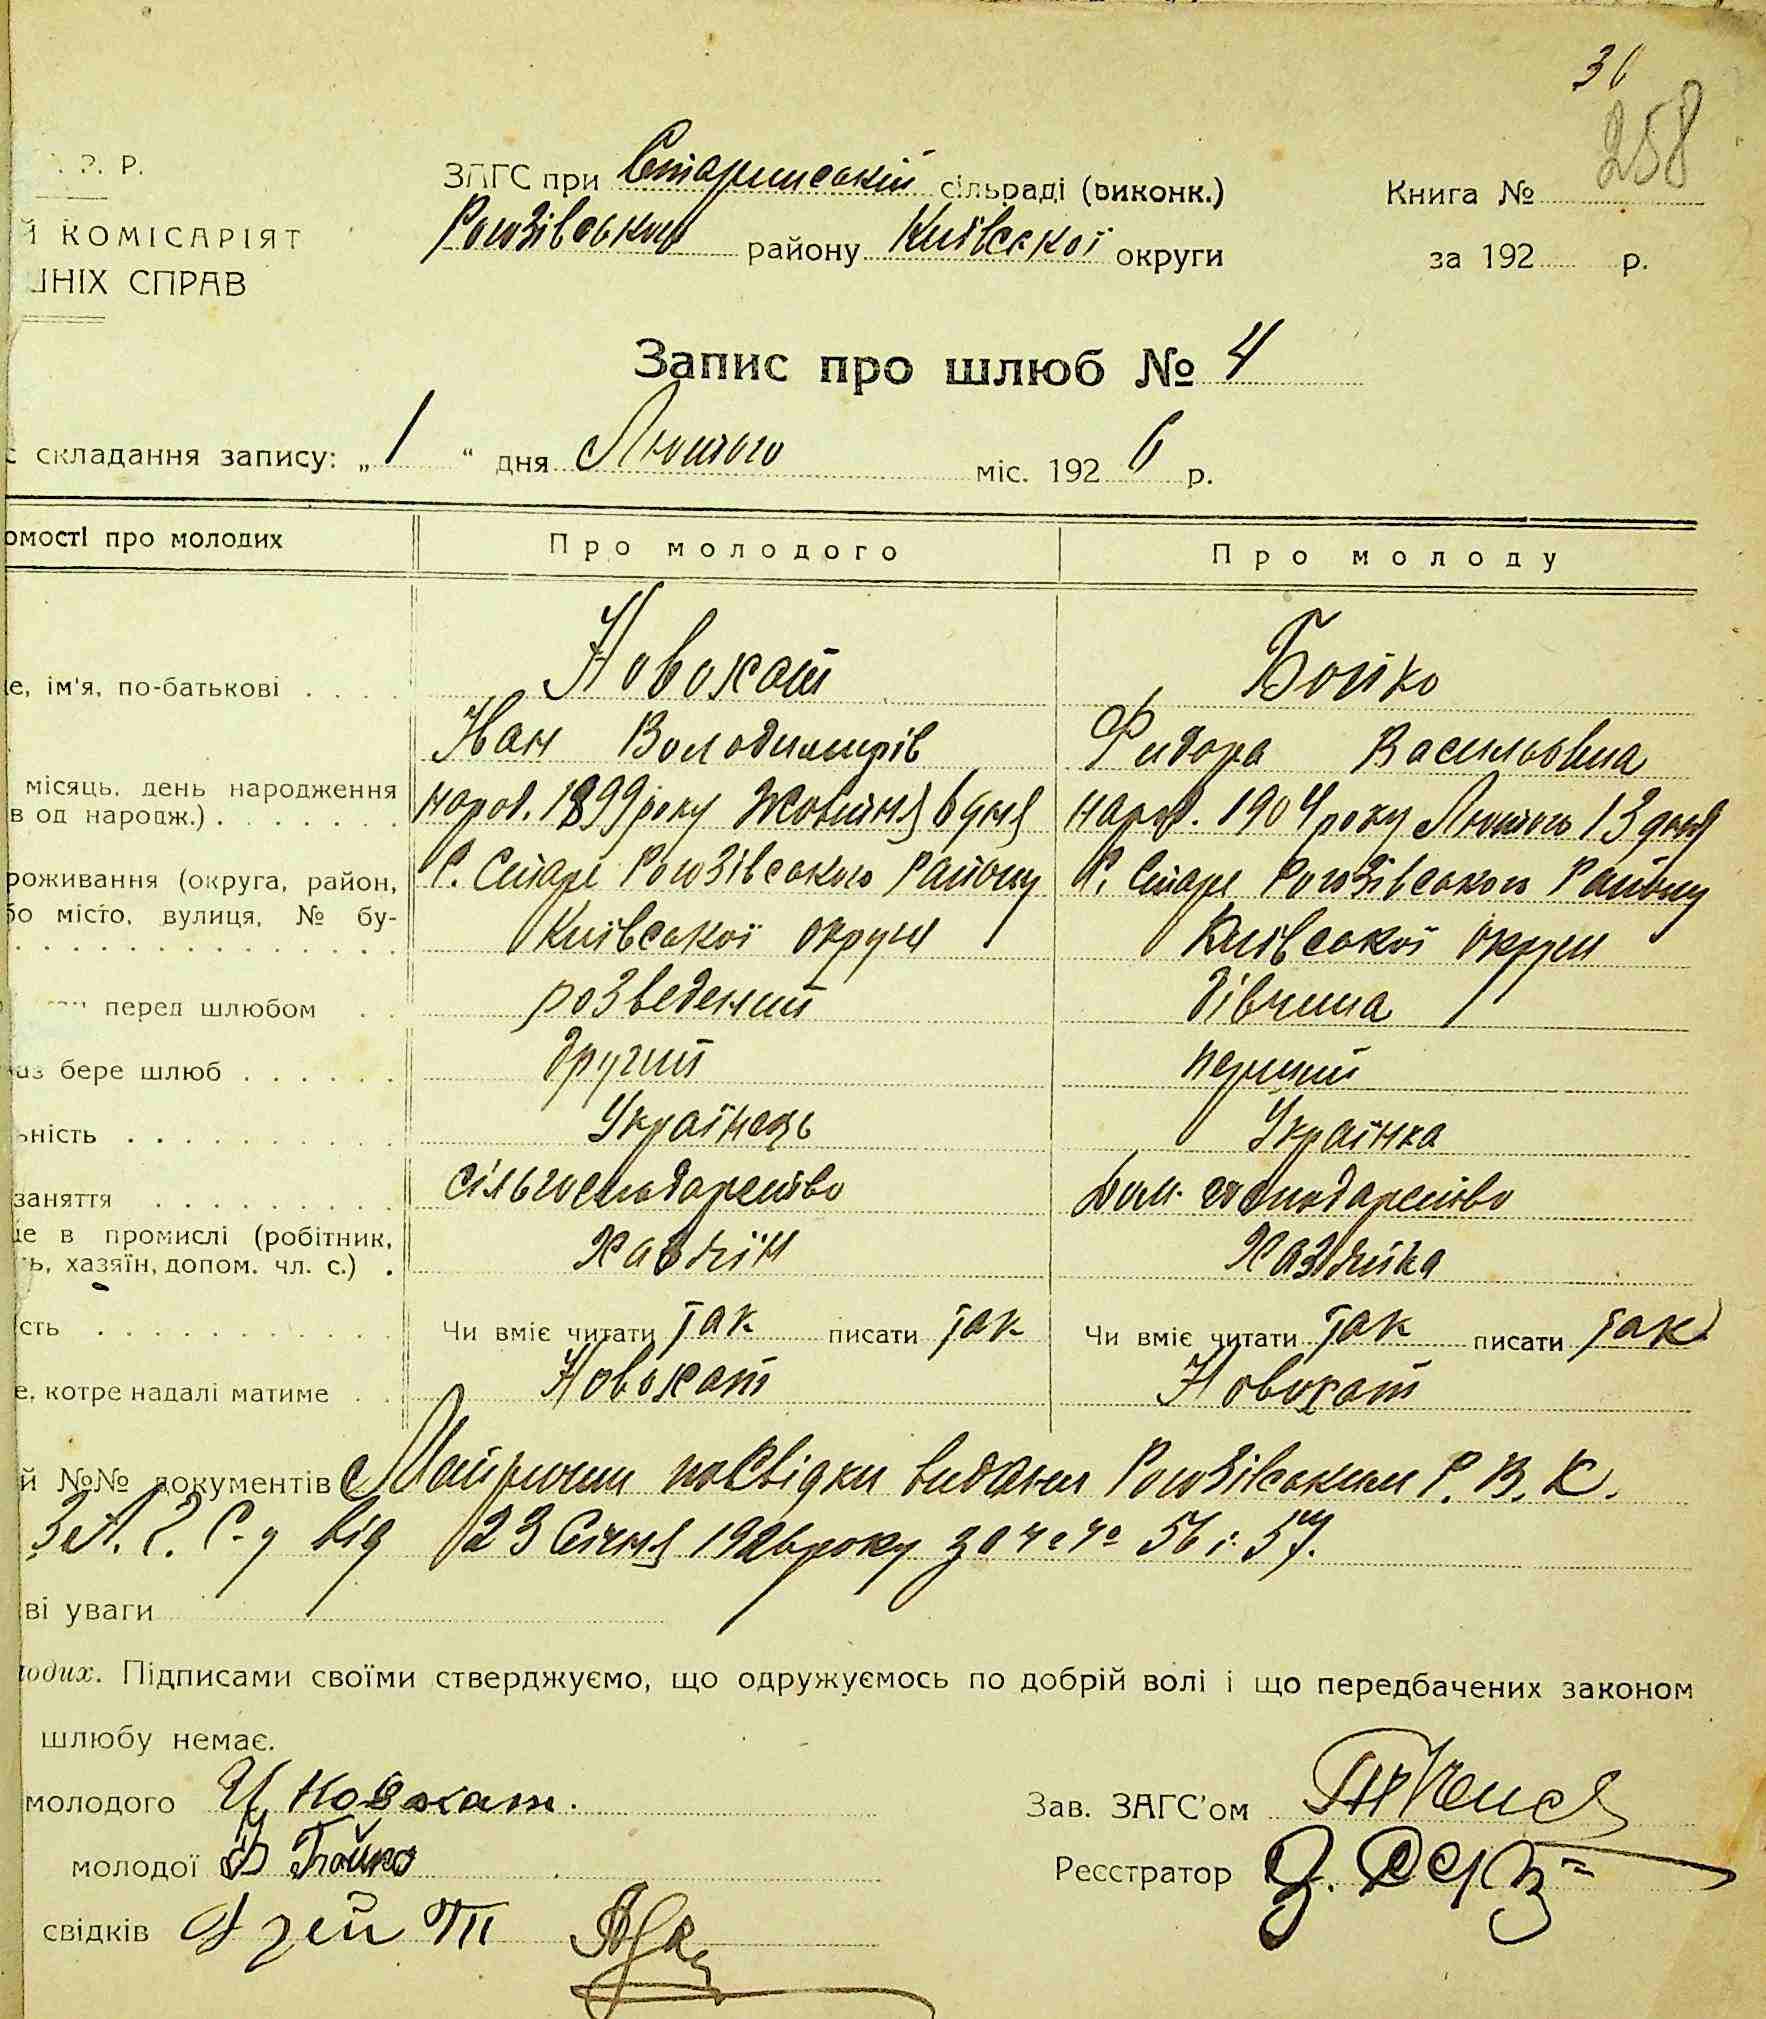 36
258
. Р. Р.
ЗАГС при Старинській сільраді (виконк.)
Книга №
Й КОМІСАРІЯТ
Рогозівського району Київської округи
за 192 р.
ШНІХ СПРАВ
Запис про шлюб № 4
с складання запису: „ 1 “ дня Лютого міс. 192 6 р.
омості про молодих
Про молодого
Про молоду
е, ім'я, по-батькові . . . .
Новохат
Бойко
Іван Володимирів
Фидора Васильовна
місяць, день народження
в од народж.) . . . . . . .
народ. 1899 року Жовтня 6 дня
народ. 1904 року Лютого 13 дня
роживання (округа, район,
С. Старе Рогозівського Району
С. Старе Рогозівського Району
бо місто, вулиця, № бу-
Київської округи
Київської округи
перед шлюбом . .
розведений
дівчина
аз бере шлюб . . . . . .
другий
перший
ьність . . . . . . . . . .
Українець
Українка
заняття . . . . . . . . .
сільгосподарство
дом. господарство
це в промислі (робітник,
ь, хазяїн, допом. чл. с.) .
Хазяїн
Хазяйка
сть . . . . . . . . . . .
Чи вміє читати так писати так
Чи вміє читати так писати так
е, котре надалі матиме . .
Новохат
Новохат
й №№ документів посвідки видани Рогозівським Р. В. К.
З.А.Г.С-у від 23 Січня 1926 року за № № 56 і 57.
ві уваги
лодих. Підписами своїми стверджуємо, що одружуємось по добрій волі і що передбачених законом
шлюбу немає.
молодого И Новохат.
Зав. ЗАГС’ом
молодої Ф Бойко
Реєстратор
свідків